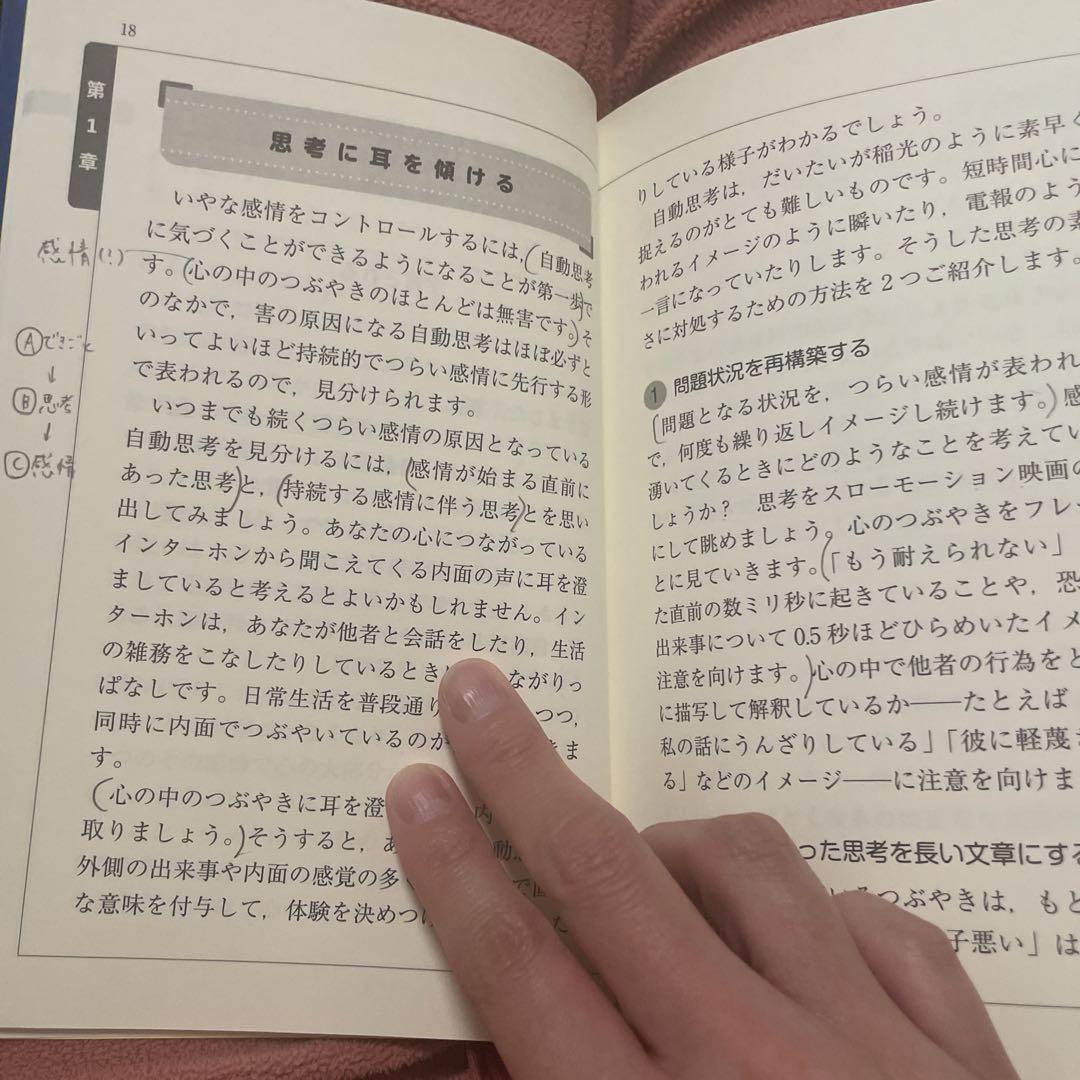 18
第1章
思考に耳を傾ける
いやな感情をコントロールするには，(自動思考
に気づくことができるようになることが第一歩)で
す。(心の中のつぶやきのほとんどは無害です。)そ
のなかで，害の原因になる自動思考はほぼ必ずと
いってよいほど持続的でつらい感情に先行する形
で表われるので，見分けられます。
いつまでも続くつらい感情の原因となっている
自動思考を見分けるには，(感情が始まる直前に
あった思考)と，(持続する感情に伴う思考)とを思い
出してみましょう。あなたの心につながっている
インターホンから聞こえてくる内面の声に耳を澄
ましていると考えるとよいかもしれません。イン
ターホンは，あなたが他者と会話をしたり，生活
の雑務をこなしたりしているとき ながりっ
ぱなしです。日常生活を普段通り つつ，
同時に内面でつぶやいているのが きま
す。
(心の中のつぶやきに耳を澄 内
取りましょう。)そうすると， 動
外側の出来事や内面の感覚の多く
な意味を付与して，体験を決めつけ た
感情(!)
Ⓐできごと
↓
Ⓑ思考
↓
Ⓒ感情
りしている様子がわかるでしょう。
自動思考は，だいたいが稲光のように素早く
捉えるのがとても難しいものです。短時間心に
われるイメージのように瞬いたり，電報のよう
一言になっていたりします。そうした思考の素
さに対処するための方法を2つご紹介します。
1 問題状況を再構築する
(問題となる状況を，つらい感情が表われ
で，何度も繰り返しイメージし続けます。)感
湧いてくるときにどのようなことを考えてい
しょうか？ 思考をスローモーション映画の
にして眺めましょう。心のつぶやきをフレー
とに見ていきます。(「もう耐えられない」
た直前の数ミリ秒に起きていることや，恐
出来事について0.5秒ほどひらめいたイメ
注意を向けます。)心の中で他者の行為をと
に描写して解釈しているか——たとえば
私の話にうんざりしている」「彼に軽蔑
る」などのイメージ——に注意を向けま
った思考を長い文章にする
つぶやきは，もと
子悪い」は